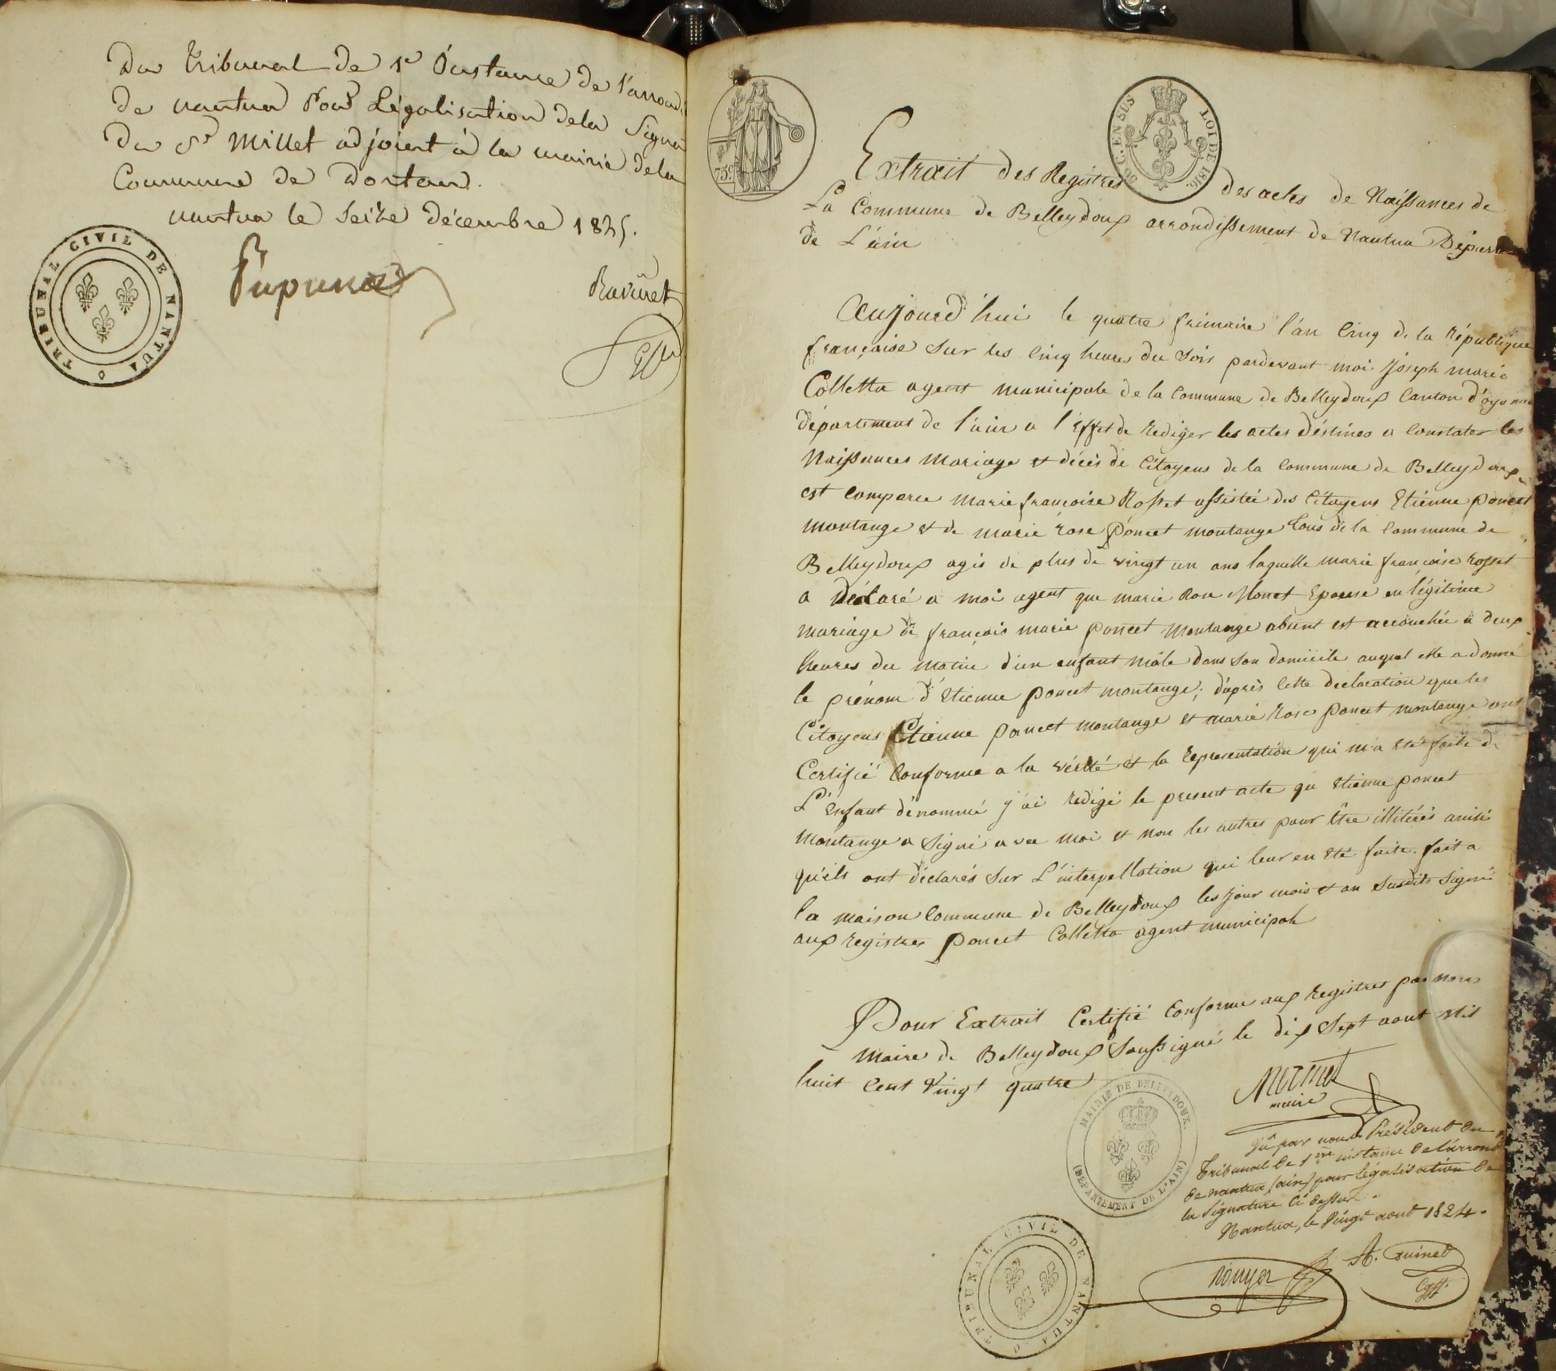 Du tribunal de 1e Instance de l'arrond.
de nantua Pour Légalisation de la Signa
du Sr Millet adjoint à la mairie de la
Commune de Dortan.
nantua le seize décembre 1825.
TRIBUNAL CIVIL DE NANTUA
Ravinet
Gffr
75c
30 C. EN SUS LOI DE 1816.
Extrait des Registres des actes de Naissances de
La Commune de Belleydoux arrondissement de Nantua Départ
de L'ain
Aujourd'hui le quatre frimaire l'an Cinq de la République
française sur les Cinq heures du Soir pardevant moi Joseph marie
Colletta agent municipale de la Commune de Belleydoux Canton d'oyonn
département de l'ain a l'Effet de Rediger les actes déstinés a Constater les
Naissances Mariage et décès de Citoyens de la Commune de Belleydoux
est Comparue Marie françoise Rosset assistée des Citoyens Etiénne poncet
montange et de marie rose poncet montange tous de la Commune de
Belleydoux agés de plus de vingt un ans laquelle marie françoise rosset
a déclaré a moi agent que marie Rose Monet Epouse en légitime
mariage de françois marie poncet montange absent est accouchée à deux
heures du matin d'un enfant mâle dans son domicile auquel elle a donné
le prénom d'Etienne poncet montange; d'après Cette déclaration que les
Citoyens Etienne poncet montange et marie Rose poncet montange ont
Certifié Conforme a la vérité et la Representation qui m'a été faite de
L'Enfant dénommé j'ai redigé le present acte qu'etienne poncet
montange a signé avec moi et non les autres pour être illitérés ainsi
qu'ils ont déclarés sur L'interpellation qui leur en été faite. fait a
la maison Commune de Belleydoux les jour mois et an susdits signé
aux registres poncet Colletta agent municipale
Pour Extrait Certifié Conforme aux Registres par nous
Maire de Belleydoux Soussigné le dix Sept aout Mil
huit Cent Vingt quatre
Mermet
maire
MAIRIE DE BELLEYDOUX.
(DÉPARTEMENT DE L'AIN)
Vu par nous Président du
Tribunal de 1ère instance de l'arrond
de nantua (ain) pour légalisation de
la Signature ci dessus.
Nantua, le Vingt aout 1824.
TRIBUNAL CIVIL DE NANTUA
Rouyer
A. Guinet
Gffr